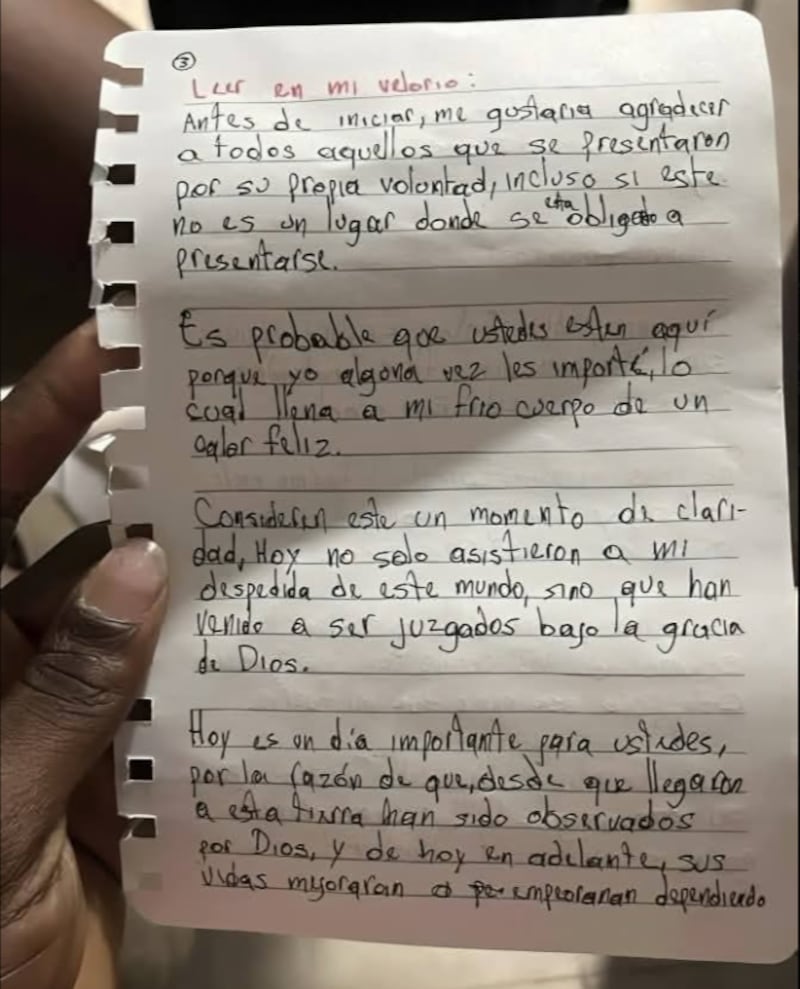 ③
Leer en mi velorio:
Antes de iniciar, me gustaria agradecer
a todos aquellos que se presentaron
por su propia voluntad, incluso si este
no es un lugar donde se esta obligado a
presentarse.
Es probable que ustedes esten aquí
porque yo alguna vez les importé, lo
cual llena a mi frio cuerpo de un
calor feliz.
Consideren este un momento de clari-
dad, Hoy no solo asistieron a mi
despedida de este mundo, sino que han
venido a ser juzgados bajo la gracia
de Dios.
Hoy es un día importante para ustedes,
por la razón de que, desde que llegaron
a esta tierra han sido observados
por Dios, y de hoy en adelante, sus
vidas mejoraran o empeoraran dependiendo